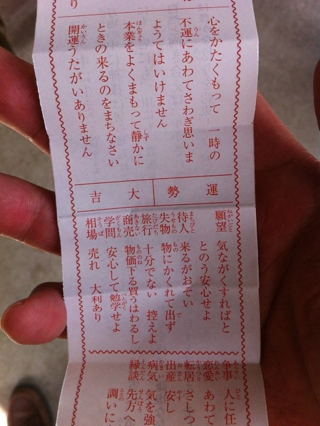 り
心をかたくもって 一時の
不運にあわてさわぎ思いま
ようてはいけません
本業をよくまもって静かに
ときの来るのをまちなさい
開運うたがいありません
運勢 大吉
願望 気ながくすればと
とのう安心せよ
待人 来るがおそい
失物 物にかくれて出ず
旅行 十分でない 控えよ
商売 物価下る買うはわるし
学問 安心して勉学せよ
相場 売れ 大利あり
争事 人に任
恋愛 あわて
転居 さしつ
出産 安し
病気 気を強
縁談 先方へ
調いに